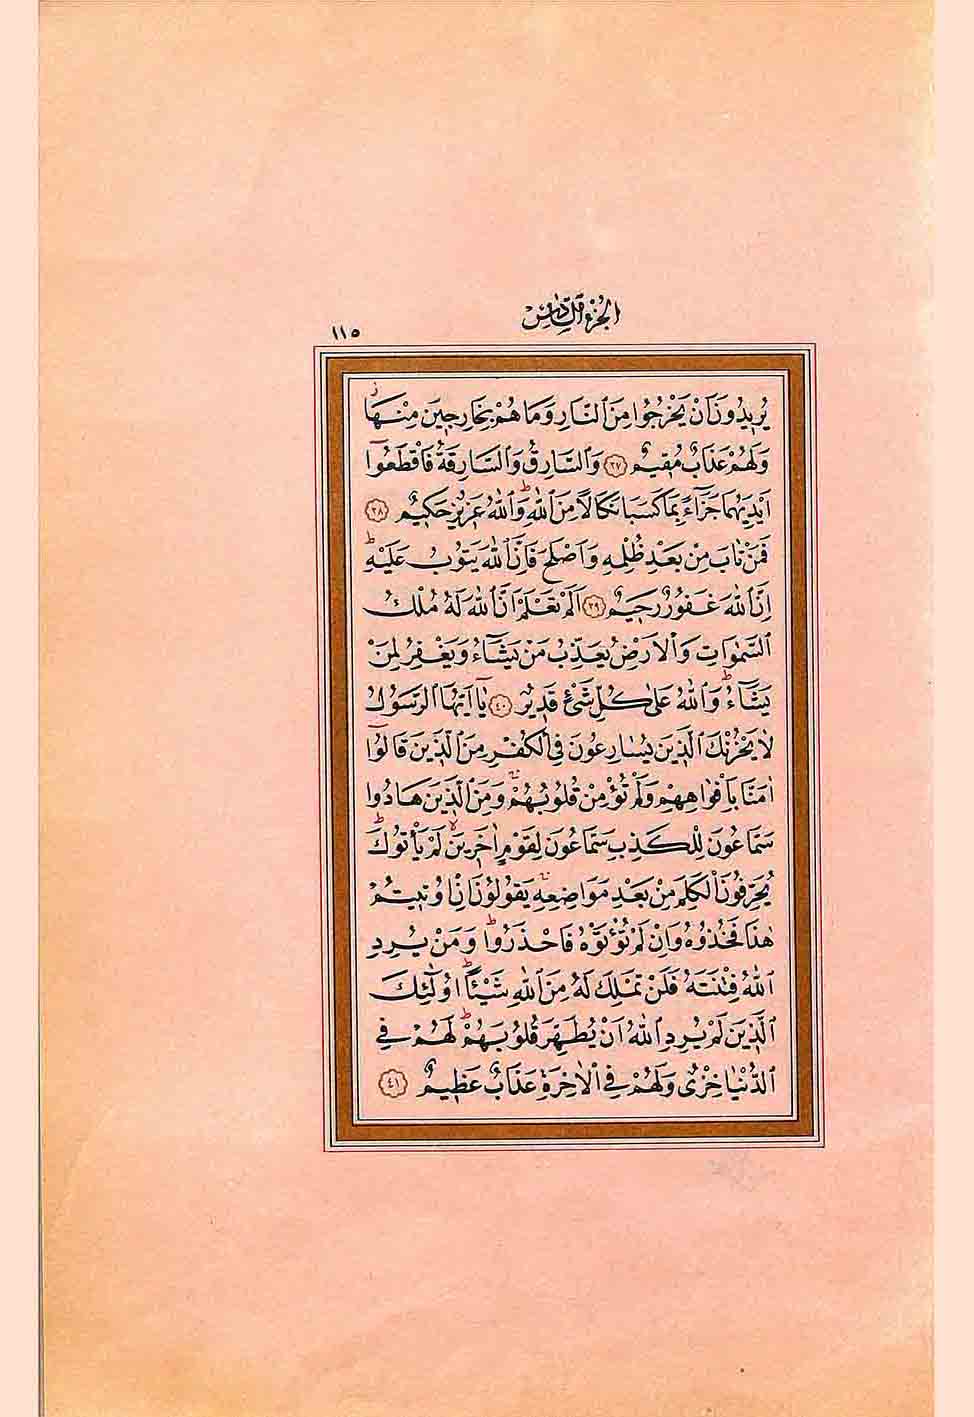 الجزء السادس
١١٥
يُرِيدُونَ اَنْ يَخْرُجُوا مِنَ النَّارِ وَمَا هُمْ بِخَارِجِينَ مِنْهَاۘ
وَلَهُمْ عَذَابٌ مُقِيمٌ ﴿٣٧﴾ وَالسَّارِقُ وَالسَّارِقَةُ فَاقْطَعُٓوا
اَيْدِيَهُمَا جَزَٓاءً بِمَا كَسَبَا نَكَالًا مِنَ اللّٰهِۜ وَاللّٰهُ عَزِيزٌ حَكِيمٌ ﴿٣٨﴾
فَمَنْ تَابَ مِنْ بَعْدِ ظُلْمِهِ وَاَصْلَحَ فَاِنَّ اللّٰهَ يَتُوبُ عَلَيْهِۜ
اِنَّ اللّٰهَ غَفُورٌ رَحِيمٌ ﴿٣٩﴾ اَلَمْ تَعْلَمْ اَنَّ اللّٰهَ لَهُ مُلْكُ
السَّمٰوَاتِ وَالْاَرْضِ يُعَذِّبُ مَنْ يَشَٓاءُ وَيَغْفِرُ لِمَنْ
يَشَٓاءُۜ وَاللّٰهُ عَلٰى كُلِّ شَيْءٍ قَدِيرٌ ﴿٤٠﴾ يَٓا اَيُّهَا الرَّسُولُ
لَا يَحْزُنْكَ الَّذِينَ يُسَارِعُونَ فِي الْكُفْرِ مِنَ الَّذِينَ قَالُٓوا
اٰمَنَّا بِاَفْوَاهِهِمْ وَلَمْ تُؤْمِنْ قُلُوبُهُمْۚ وَمِنَ الَّذِينَ هَادُوا
سَمَّاعُونَ لِلْكَذِبِ سَمَّاعُونَ لِقَوْمٍ اٰخَرِينَۙ لَمْ يَأْتُوكَۜ
يُحَرِّفُونَ الْكَلِمَ مِنْ بَعْدِ مَوَاضِعِهِۚ يَقُولُونَ اِنْ اُوتِيتُمْ
هٰذَا فَخُذُوهُ وَاِنْ لَمْ تُؤْتَوْهُ فَاحْذَرُواۜ وَمَنْ يُرِدِ
اللّٰهُ فِتْنَتَهُ فَلَنْ تَمْلِكَ لَهُ مِنَ اللّٰهِ شَيْـًٔاۜ اُولٰٓئِكَ
الَّذِينَ لَمْ يُرِدِ اللّٰهُ اَنْ يُطَهِّرَ قُلُوبَهُمْۜ لَهُمْ فِي
الدُّنْيَا خِزْيٌ وَلَهُمْ فِي الْاٰخِرَةِ عَذَابٌ عَظِيمٌ ﴿٤١﴾